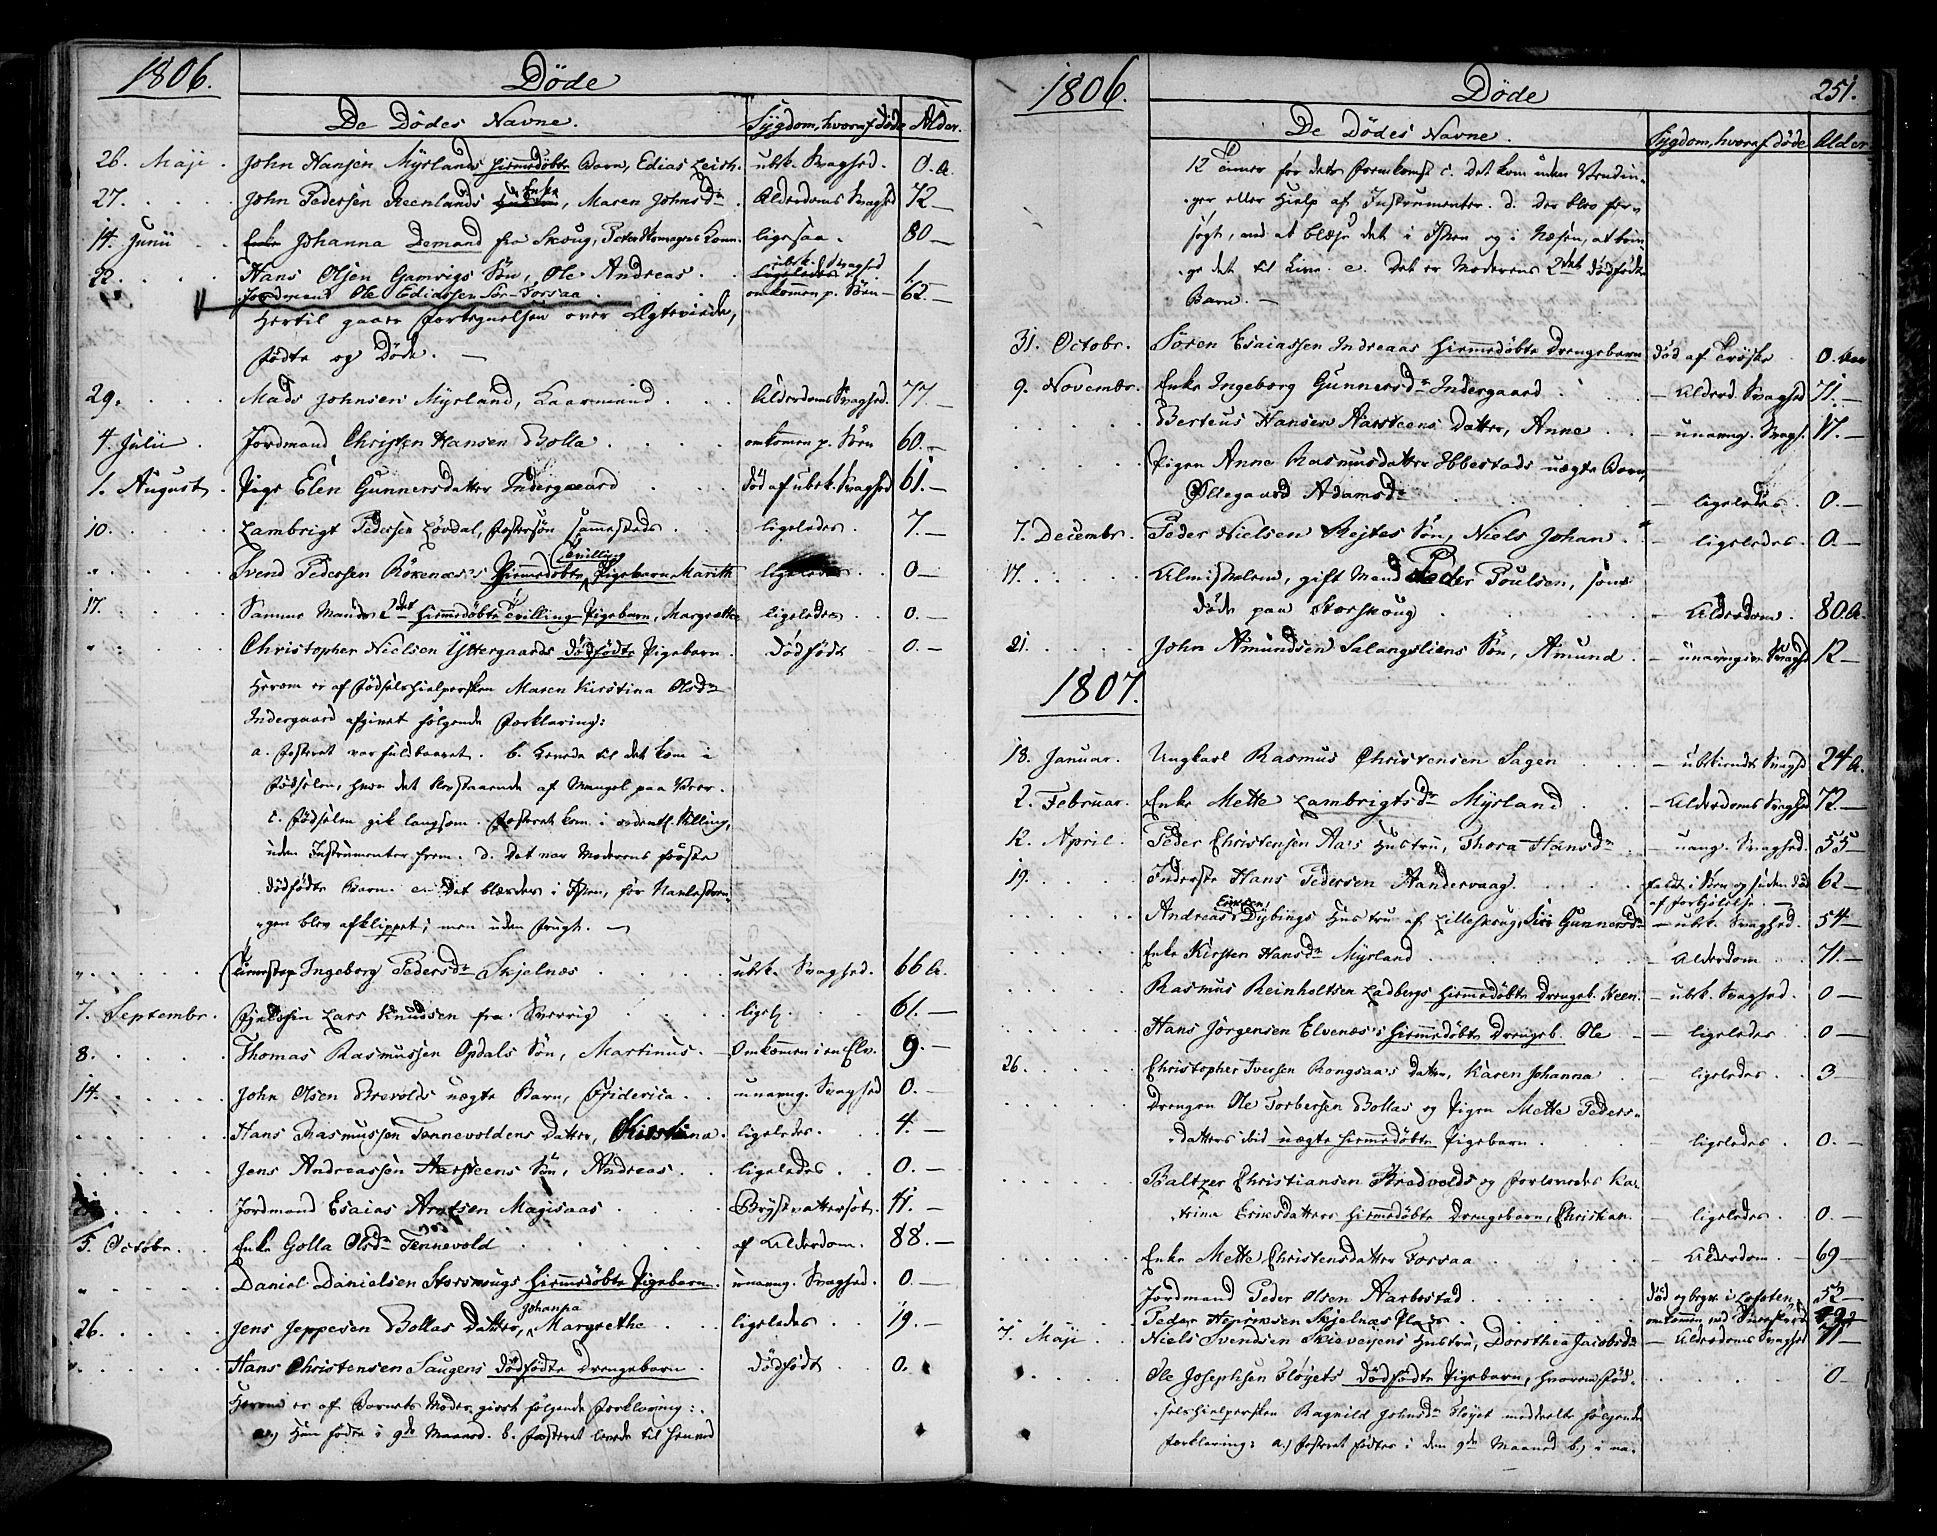 1806.
Döde
De Dödes Navne.
Sÿgdom, hvoraf döde
Alder.
26. Maji. John Hansen Mÿrlands hiemmedöbte Barn, Edias Leith. ubk. Svaghed. 0. A.
27. John Pedersen Reenlands Enke, Maren Johnsdr. Alderdoms Svaghed 72 —
14. Junii Johanna Demand fra Skoug, Kone. ligesaa. 80 —
22. Hans Olsen Gamvigs Sön, Ole Andreas. ubk. Svaghed 1
Jordmand Ole Ediassen Sör-Forsaa. omkommen p. Söen — 62. —
Hertil gaaer Fortegnelsen over Ægteviede,
Födte og Döde. —
29. Mads Johnsen Mÿrland, Kaarmand. Alderdoms Svaghed. 77 —
4. Julii. Jordmand Christen Hansen Bolla. omkomen p. Söen 60. —
1. August. Pige Elen Gunnersdatter Indergaard död af ubk. Svaghed 61. —
10. Lambrigt Pedersen Lövdal, Fostersön sammesteds ligeledes. 7. —
" Svend Pedersen Rökenæs's hiemmedöbte Tvilling Pigebarn Marith ligeledes 0 —
17. Samme Mands 2det hiemmedöbte Tvilling Pigebarn, Margrethe ligeledes 0. —
" Christopher Nielsen Ÿttergaards dödfödte Pigebarn. Dödfödt 0. —
Herom er af Födselshielpersken Maren Kirstina Olsdr
Indergaard afgivet fölgende Forklaring:
a. Fosteret var fuldbaaret. b. Levede til det kom i
Födselen, hvor det blev staaende af Mangel paa Veer.
c. Födselen gik langsom. Fosteret kom i ordentl. Stilling,
uden Instrumenter frem. d. Det var Moderens förste
dödfödte Barn. e. Det blæstes i Issen, för Navlestren-
-gen blev afklippet; men uden Frugt. —
" Ingeborg Pedersdr Skjelnæs ubk. Svaghed. 66 A.
7. Septembr. Lars Knudsen fra Sverrig ligel. 61. —
8. Thomas Rasmussen Opdals Sön, Martinus. Omkommen i en Elv. 9. —
14. John Olsen Brevolds uægte Barn, Friderica. unavng. Svaghed 0. —
Hans Rasmussen Tennevoldens Datter, Kirstina. ligeledes. 4. —
Jens Andreassen Aarsteens Sön, Andreas. ligeledes. 0. —
Jordmand Esaias Arntsen Magisaas. Brÿstvattersot. 41. —
5. Octobr. Enke Golla Olsdr Tennevold af Alderdom. 88. —
" Daniel Danielsen Storskougs hiemmedöbte Pigebarn. unavng. Svaghed. 0. —
26. Jens Jeppesen Bollas Datter, Johanna Margrethe. ligeledes. 19. —
" Hans Christensen Saugens dödfödte Drengebarn. dödfödt 0.
Herom er af Barnets Moder giort fölgende Forklaring:
a) Hun födte i 9de Maaned. b. Fosteret levede til henved
1806.
Döde
251.
De Dödes Navne.
Sÿgdom, hvoraf döde
Alder
12 Timer för dets Fremkomst. c. Det kom uden Vendin-
-ger eller Hielp af Instrumenter. d. Der blev for-
sögt, ved at blæse det i Issen og i Næsen, at brin-
-ge det til Live. e. Det er Moderens 2det dödfödte
Barn. —
31. Octobr. Sören Esaiassen Indreaas hiemmedöbte Drengebarn död af Tröske 0. Aar
9. Novembr. Enke Ingeborg Gunnersdr Indergaard — Alderd. Svaghed 71. —
Berteus Hansen Aarsteens Datter, Anne — unavng. Svagh. 17. —
Pigen Anne Rasmusdatter Ibbestads uægte Barn,
Oldegaard Adamsdr — ligeledes. 0. —
7. Decembr. Peder Nielsen Rejtes Sön, Niels Johan. — ligeledes. 0. —
17. Almislem, gift Mand Peder Poulsen, som
döde paa Storskoug — Alderdom. 80. A.
21. John Amundsen Salangsliens Sön, Amund. — unavngiven Svaghed 12 —
1807.
18. Januar. Ungkarl Rasmus Christensen Sagen — ubekiendt Svaghed 24 A.
2. Februar. Enke Mette Lambrigtsdr Mÿrland — Alderdoms Svaghed 72 —
12. April. Peder Christensen Aa's Hustru, Thora Hansdr — unavng. Svaghed. 55 —
19. Inderste Hans Pedersen Aandervaag. faldt i Söen og siden död 62 —
af Forkjölelse. —
Andreas Ericsen Dÿbings Hustru af Lilleskoug, Siri Gunnersdr — ubk. Svaghed. 54 —
Enke Kirsten Hansdr Mÿrland — Alderdom 71. —
Rasmus Reinholtsen Ladbergs hiemmedöbte Drengeb. Steen. — ubk. Svaghed. 0 —
Hans Jörgensen Elvenæs's hiemmedöbte Drengeb. Ole — ligeledes 0 —
26. Christopher Iversen Rongsaa's Datter, Karen Johanna — ligeledes 3 —
Drengen Ole Torbersen Bollas og Pigen Mette Peders-
-datters ibid uægte hiemmedöbte Pigebarn. — ligeledes 0. —
Baltzer Christiansen Bredvolds og Forlovedes Ka-
-trina Eriksdatters hiemmedöbte Drengebarn, Christian. — ligeledes 0. —
Enke Mette Christensdatter Forsaa — Alderdom — 69 —
Jordmand Peder Olsen Aarbostad död og begr. i Lofoten 52 —
Peder Henriksen Skjelnæs Plads omkommen ved
7. Maji Niels Svendsen Skieveyens Hustru, Dorothea Jacobsdr — Alderdoms Svaghed 71 —
Ole Josephsen Flöyets dödfödte Pigebarn, hvorom Föd- 0 —
-selshielpersken Ragnild Johnsdr Flöyet meddeelte fölgende
Forklaring: a) Fosteret födtes i den 9de Maaned b) i na-